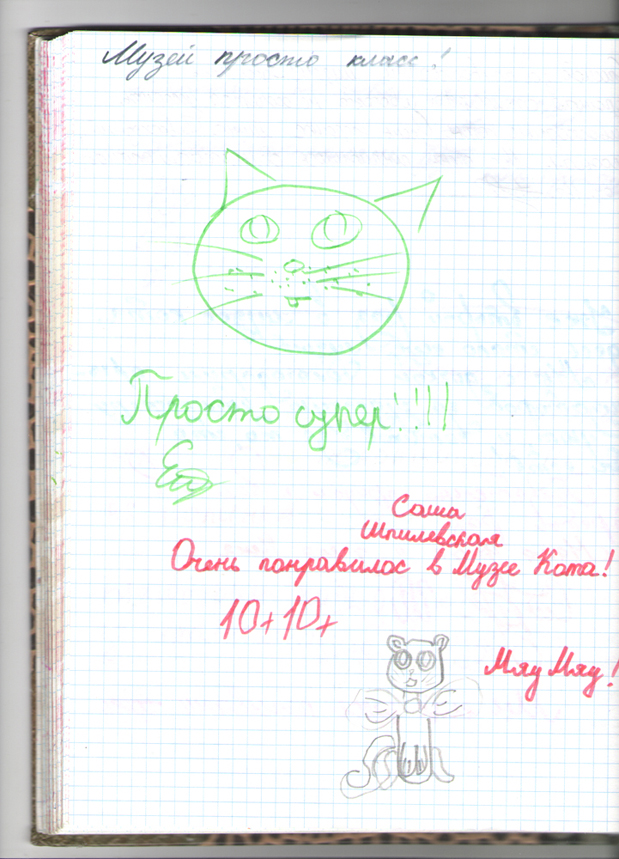 Музей просто класс!
Просто супер!!!!
Саша
Шпилевская
Очень понравилос в Музее Кота!
10+10+
Мяу Мяу!